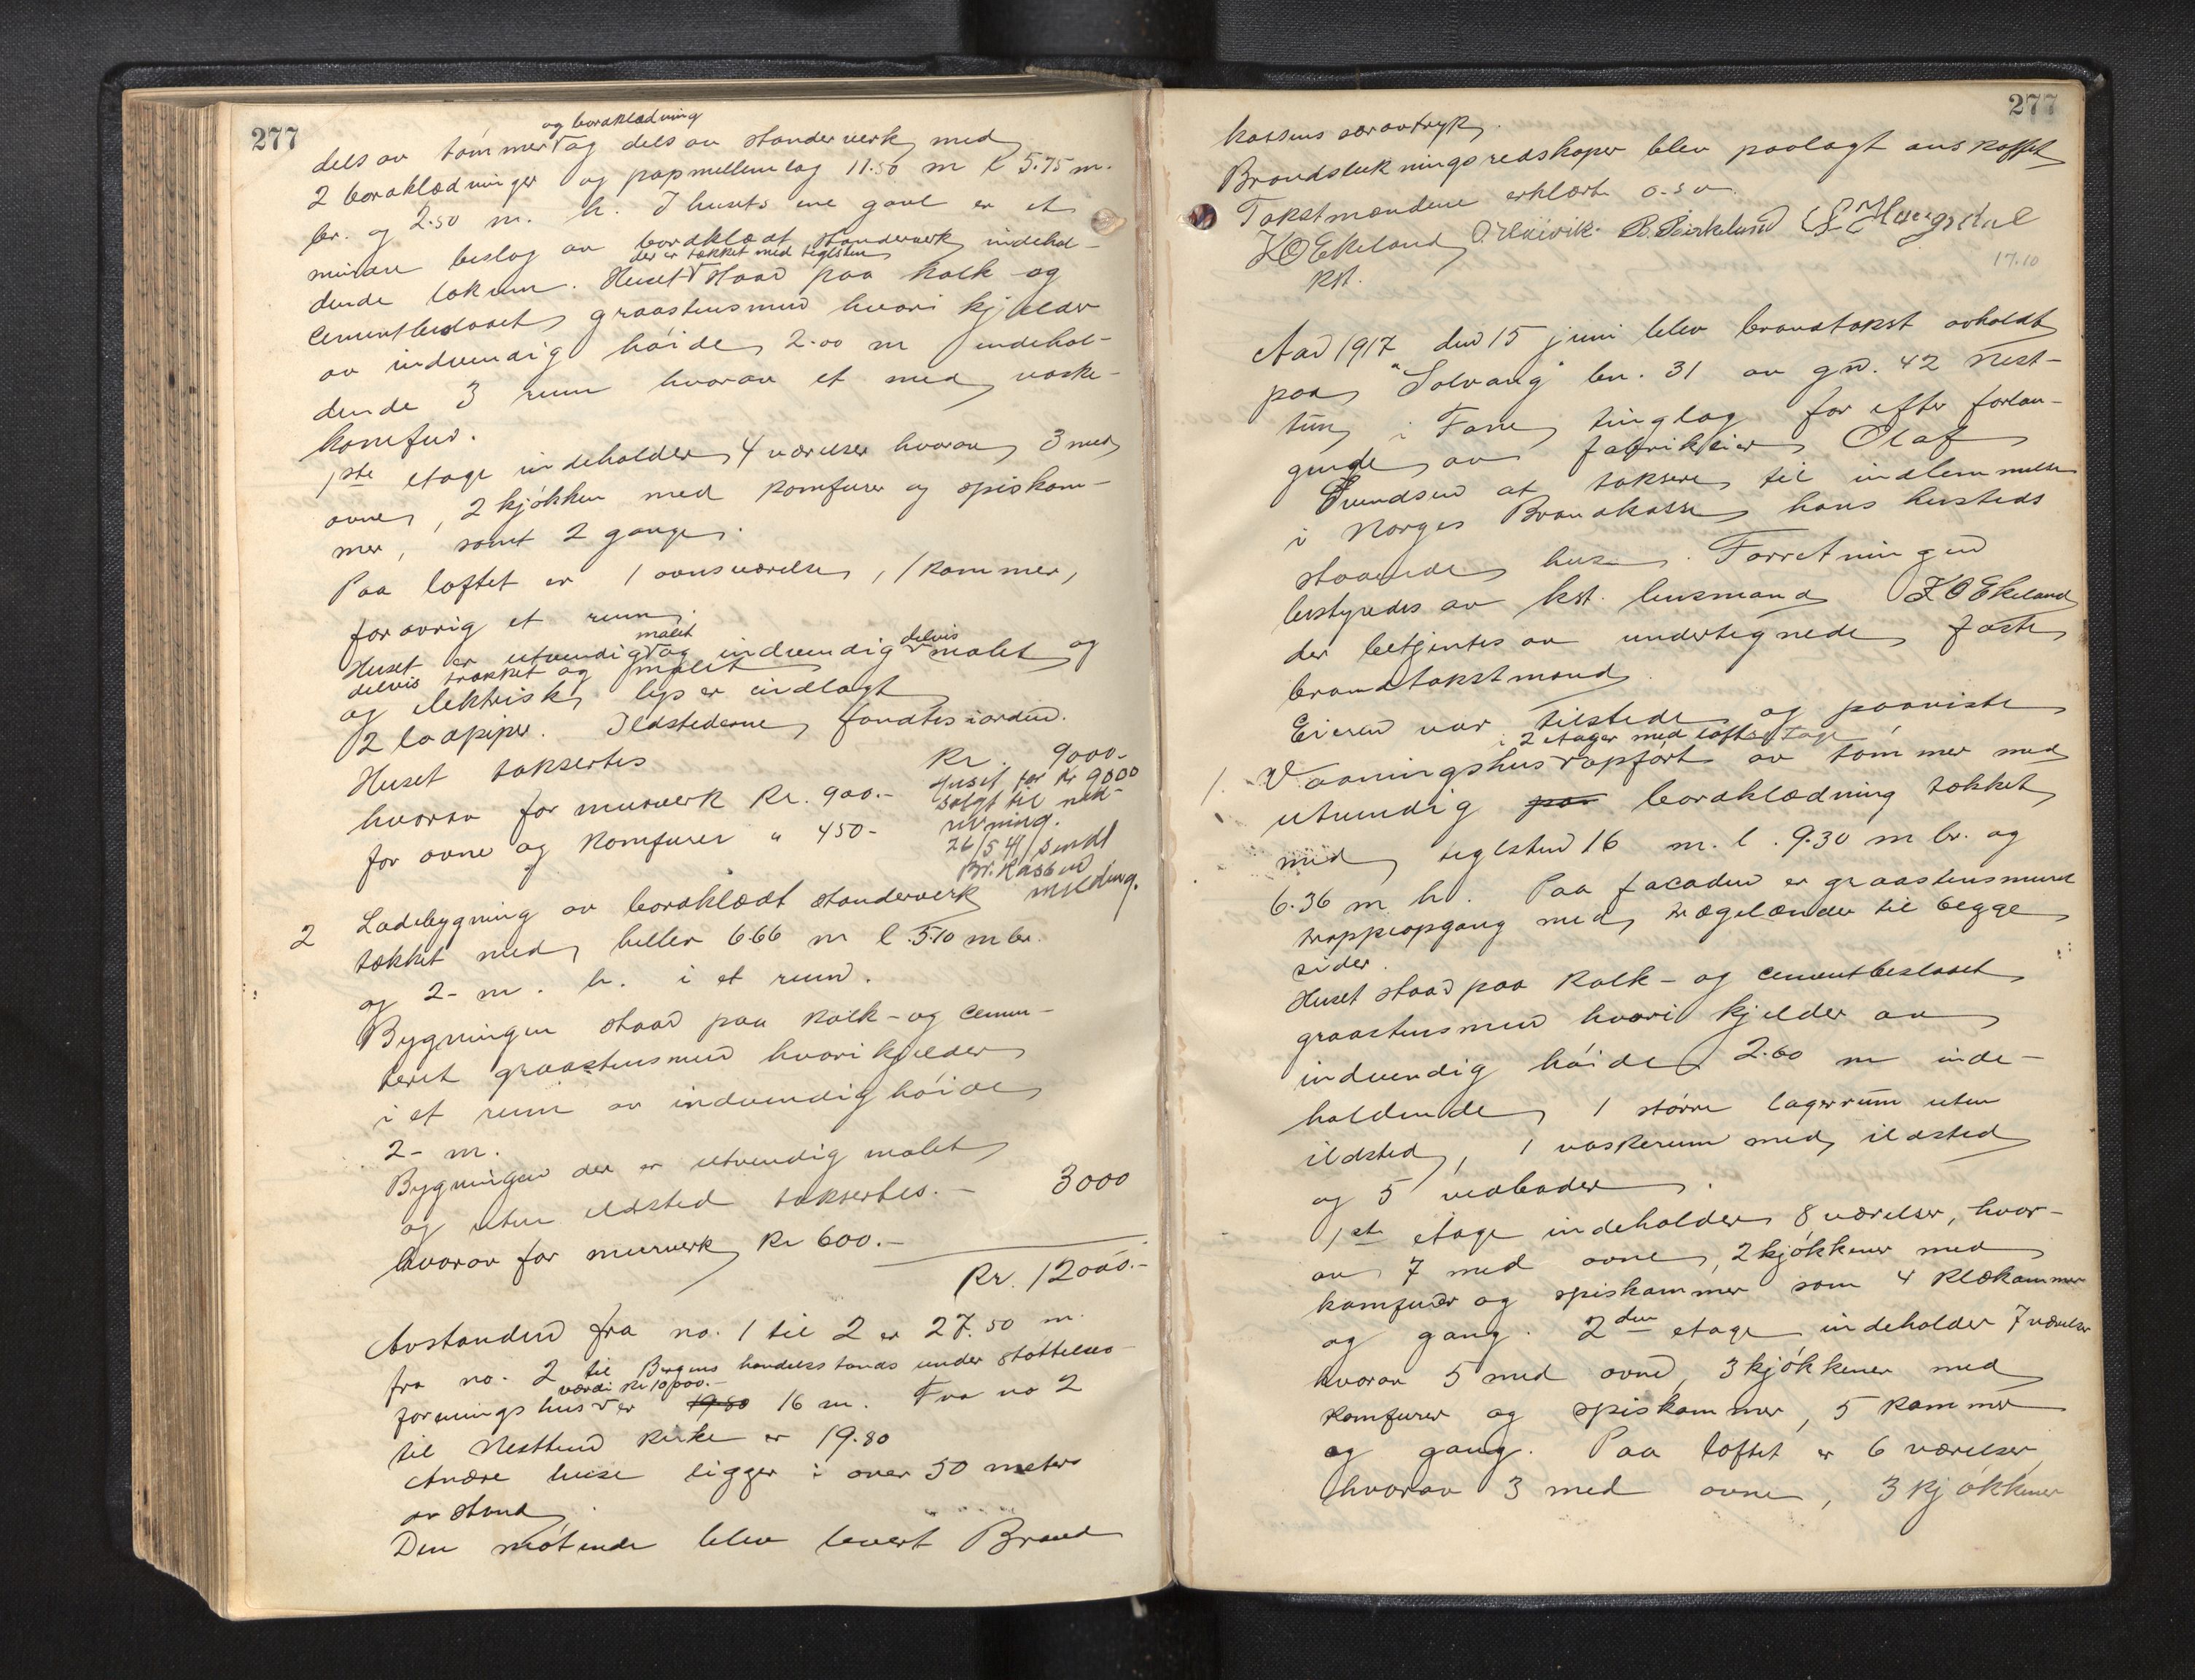 277
og bordklædning
dels av tømmer og dels av standerverk med
2 bordklædninger og papmellemlag 11.50 m l 5.75 m.
br. og 2.50 m. h. I husets ene gavl er et
mindre beslag av bordklædt standerverk indehol-
der er tækket med teglsten
dende lokum. Huset staar paa kalk- og
cementbeslaaet graastensmur hvori kjelder
av indvendig høide 2.00 m indehol-
dende 3 rum hvorav et med vaske-
komfur.
1ste etage indeholder 4 værelser hvorav 3 med
ovne, 2 kjøkken med komfurer og spiskam-
mer, samt 2 gange.
Paa loftet er 1 ovnsværelse, 1 kammer,
forøvrig et rum.
malet delvis
Huset er utvendig og indvendig malet og
delvis trækket og malet
og elektrisk lys er indlagt
2 løpiper. Ildstederne fandtes i orden.
Huset taksertes Kr. 9000-
hvorav for murverk Kr. 900.-
for ovne og komfurer " 450-
Huset for Kr 9000
solgt til ned-
rivning.
26/5 41 sendt
Br. kassen
melding.
2 Ladebygning av bordklædt standerverk
tækket med heller 6.66 m l. 5.10 m br.
og 2- m. h. i et rum.
Bygningen staar paa kalk- og cemen-
teret graastensmur hvori kjelder
i et rum av indvendig høide
2- m.
Bygningen der er utvendig malet
og uten ildsted taksertes.- 3000
hvorav for murverk Kr 600.-
Kr. 12000.-
Avstanden fra no. 1 til 2 er 27.50 m.
fra no. 2 til Bergens handelsstands understøttelses-
værdi Kr 10 000.-
forenings hus er 19.80 16 m. Fra no 2
til Nesttun kirke er 19.80
Andre huse ligger i over 50 meters
avstand.
Den møtende blev levert Brand
277
kassens særavtryk.
Brandslukningsredskaper blev paalagt anskaffet
Takstmændene erklærte o.s.v.
K O Ekeland O. Høivik. B. Birkeland
kst.
17.10
Aar 1917 den 15 juni blev brandtakst avholdt
paa "Solvang" bn. 31 av gn. 42 Nest-
tun i Fane tinglag for efter forlan-
gende av fabrikeier Olaf
Svendsen at taksere til indlemmelse
i Norges Brandkasse hans hersteds
staaende hus. Forretningen
bestyredes av kst. lensmand K O Ekeland
der betjentes av undertegnede faste
brandtakstmænd.
Eieren var tilstede og paaviste
i 2 etager med loftsetage
1. Vaaningshus opført av tømmer med
utvendig paa bordklædning tækket
med teglsten 16 m. l. 9.30 m br. og
6.36 m h. Paa facaden er graastensmuret
trappeopgang med trægelænder til begge
sider.
Huset staar paa kalk- og cementbeslaaet
graastensmur hvori kjelder av
indvendig høide 2.60 m inde-
holdende 1 større lagerrum uten
ildsted, 1 vaskerum med ildsted
og 5 vedboder.
1ste etage indeholder 8 værelser, hvor-
av 7 med ovne, 2 kjøkkener med
komfurer og spiskammer som 4 klækammer
og gang. 2den etage indeholder 7 værelser
hvorav 5 med ovne, 3 kjøkkener med
komfurer og spiskammer, 5 kammer
og gang. Paa loftet er 6 værelser
hvorav 3 med ovne, 3 kjøkkener